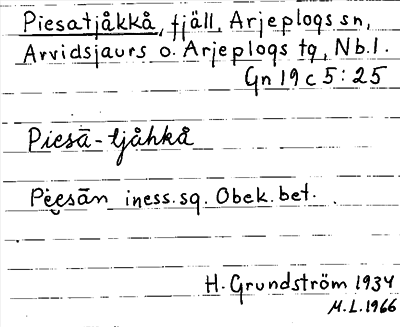 Piesatjåkkå, fjäll, Arjeplogs sn,
Arvidsjaurs o. Arjeplogs tg, Nb.l.
Gn 19 c 5:25
Piesā-tjåhkå
Pèe̮sān iness.sg. Obek. bet.
H. Grundström 1934
M.L.1966